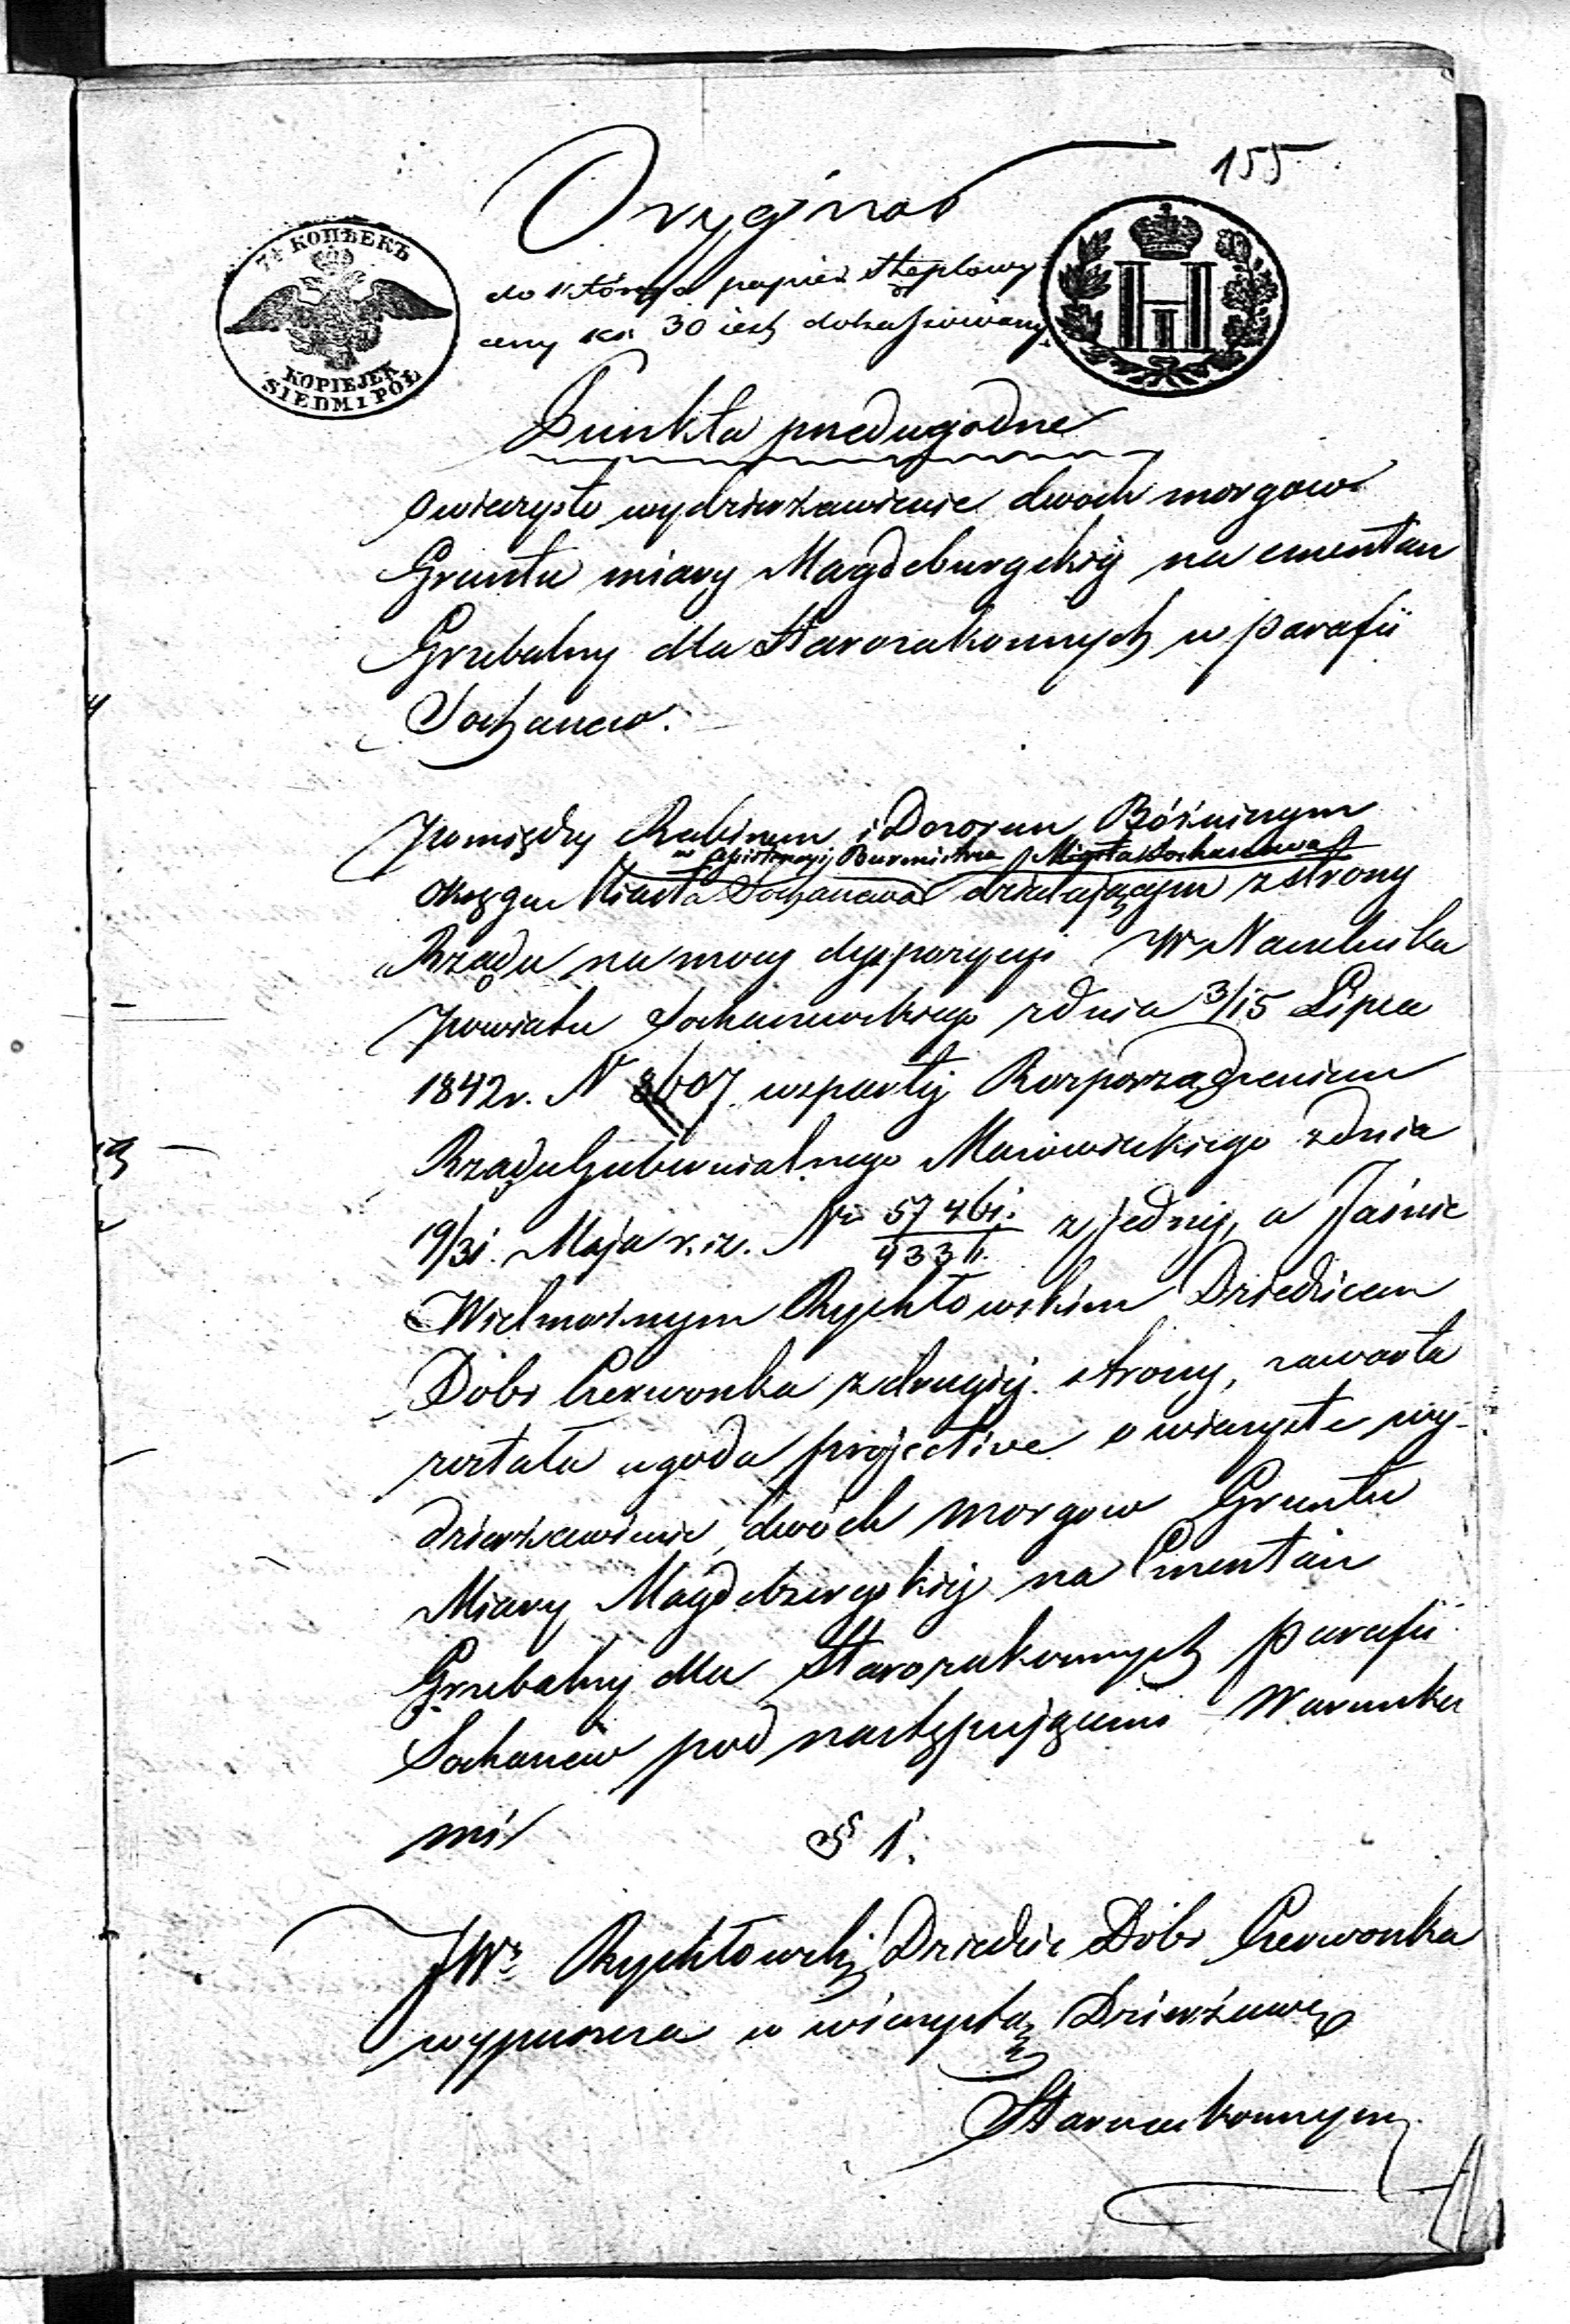 155.
Oryginał
7½ КОПѢЕКЪ
KOPIEJEK
SIEDM I PÓŁ
do którego papier stęplowy
ceny ko: 30 iest dokassowany
H I
Punkta przedugodne
o wieczyste wydzierżawienie dwóch morgow
Gruntu miary Magdeburgskiej na cmentarz
Grzebalny dla Starozakonnych w parafii
Sochaczew.
Pomiędzy Rabinem i Dozorem Bóżniczym
w Assistencyi Burmistrza Miasta Sochaczewa
okręgu Miasta Sochaczewa działającym z strony
Rządu na mocy dyspozycyi W Naczelnika
Powiatu Sochaczewskiego z dnia 3/15 Lipca
1842 r. N 8607 wspartej Rozporządzeniem
Rządu Gubernialnego Mazowieckiego z dnia
19/31. Maja r. z. Nr 57461. / 4331. z jednej, a Jaśnie
Wielmożnym Rychłowskim Dziedzicem
Dóbr Czerwonka z drugiej strony, zawarta
została ugoda projective o wieczyste wy-
dzierżawienie dwóch morgow Gruntu
Miary Magdeburgskiej na Cmentarz
Grzebalny dla Starozakonnych parafii
Sochaczew pod następującemi Warunka
mi
§ 1.
JWr Rychłowski Dziedzic Dóbr Czerwonka
wypuszcza w wieczystą Dzierżawę
Starozakonnym